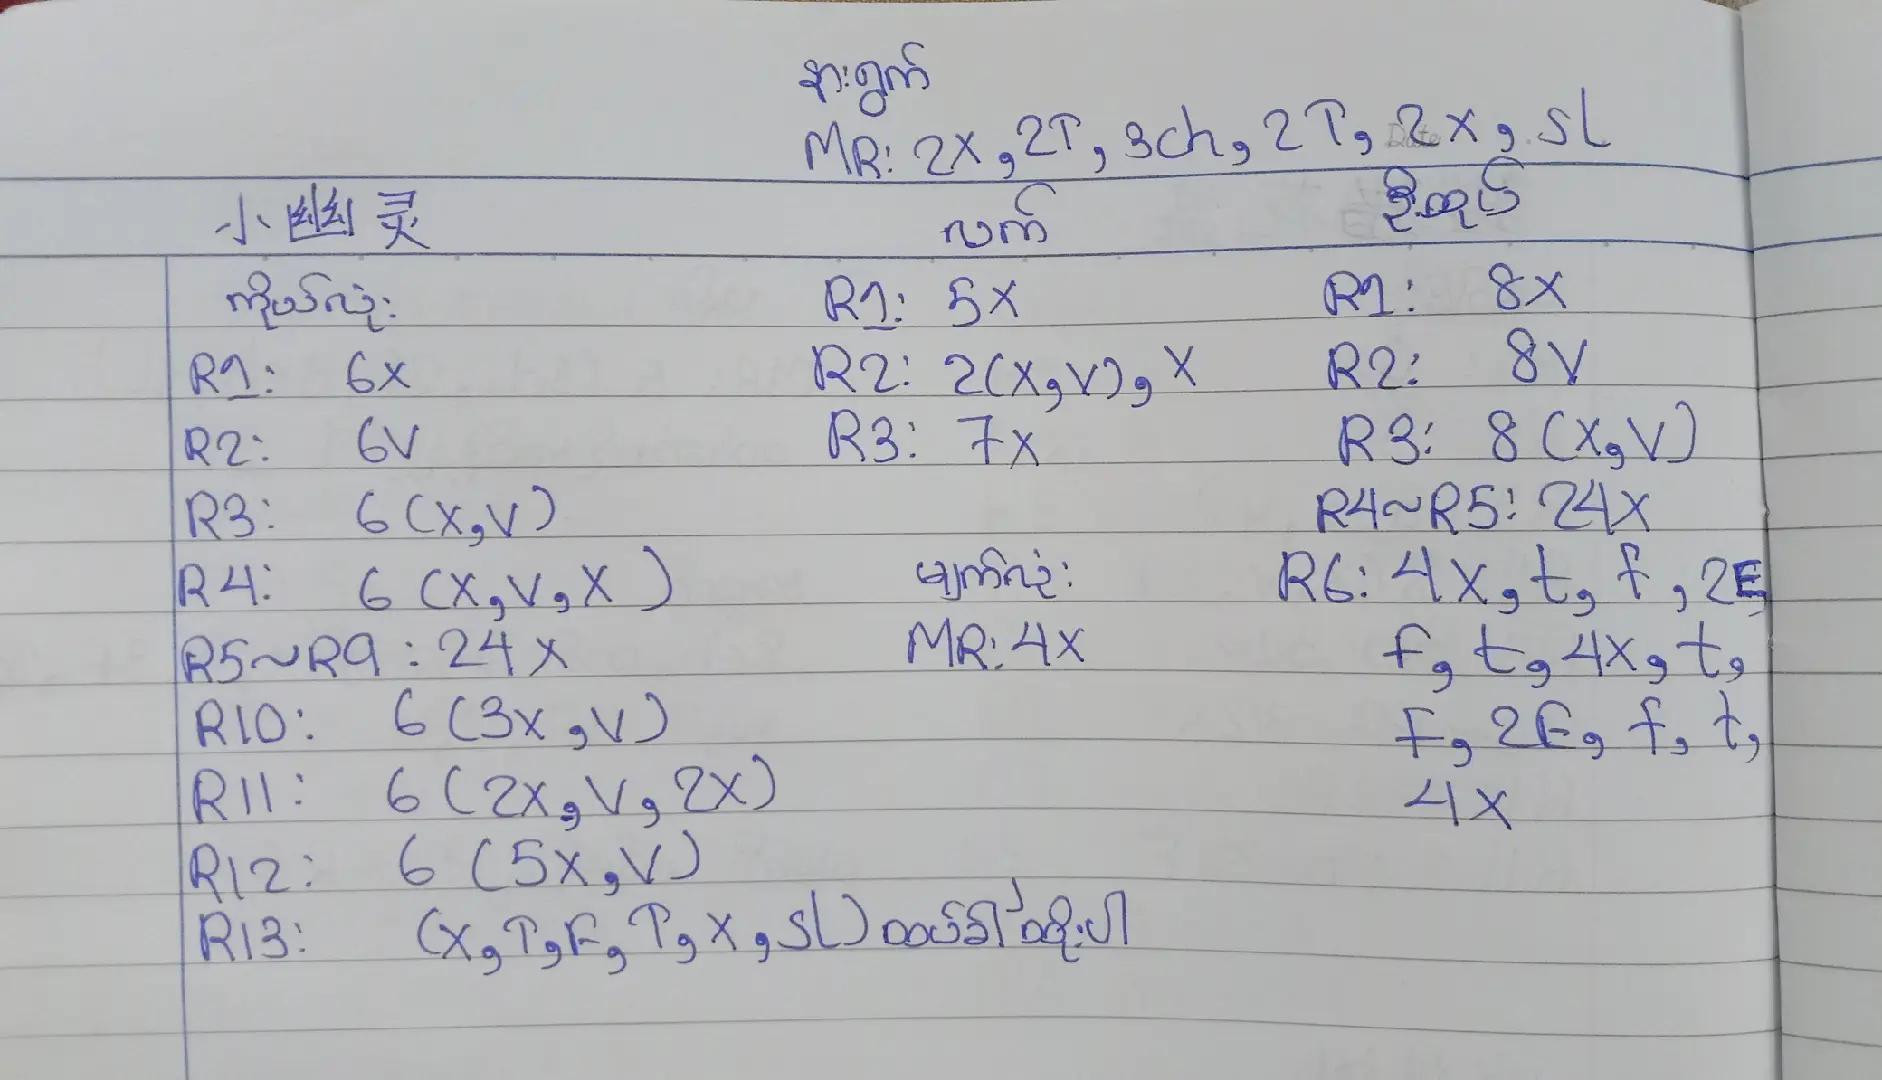 နားရွက်
MR: 2x, 2T, 3ch, 2T, 2x, sl
小幽灵
လက်
ဦးထုပ်
ကိုယ်လုံး
R1: 6x
R2: 6V
R3: 6 (x, V)
R4: 6 (x, V, x)
R5~R9: 24x
R10: 6 (3x, V)
R11: 6 (2x, V, 2x)
R12: 6 (5x, V)
R13: (x, T, F, T, x, sl) ထပ်ခါ ထိုးပါ
R1: 5x
R2: 2(x, V), x
R3: 7x
မျက်လုံး:
MR: 4x
R1: 8x
R2: 8V
R3: 8 (x, V)
R4~R5: 24x
R6: 4x, t, f, 2E
f, t, 4x, t,
F, 2E, f, t,
4x